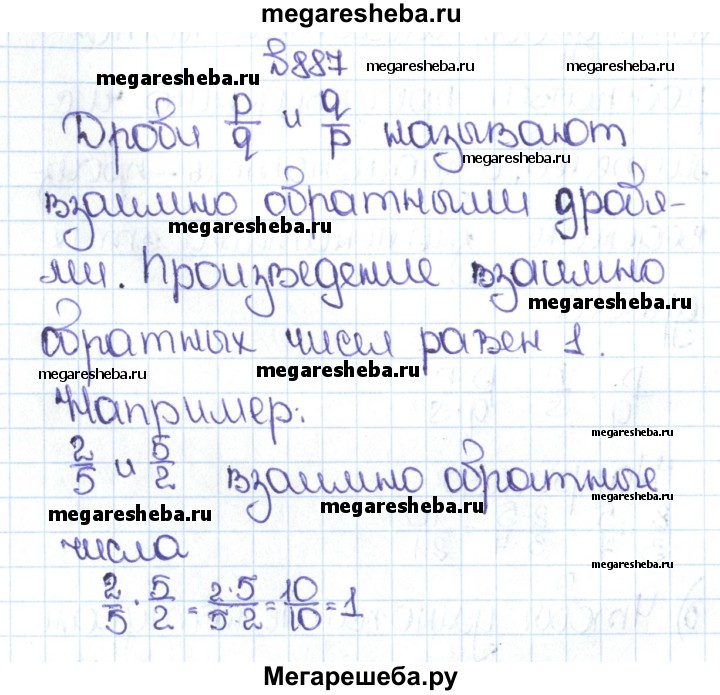 megaresheba.ru
№887
megaresheba.ru megaresheba.ru megaresheba.ru
Дроби p/q и q/p называют
megaresheba.ru
взаимно обратными дробя-
megaresheba.ru
ми. Произведение взаимно
megaresheba.ru
обратных чисел равен 1.
megaresheba.ru megaresheba.ru megaresheba.ru
Например:
megaresheba.ru
2/5 и 5/2 взаимно обратные
megaresheba.ru megaresheba.ru megaresheba.ru
числа
2/5 · 5/2 = 2·5/5·2 = 10/10 = 1
megaresheba.ru
Мегарешеба.ру